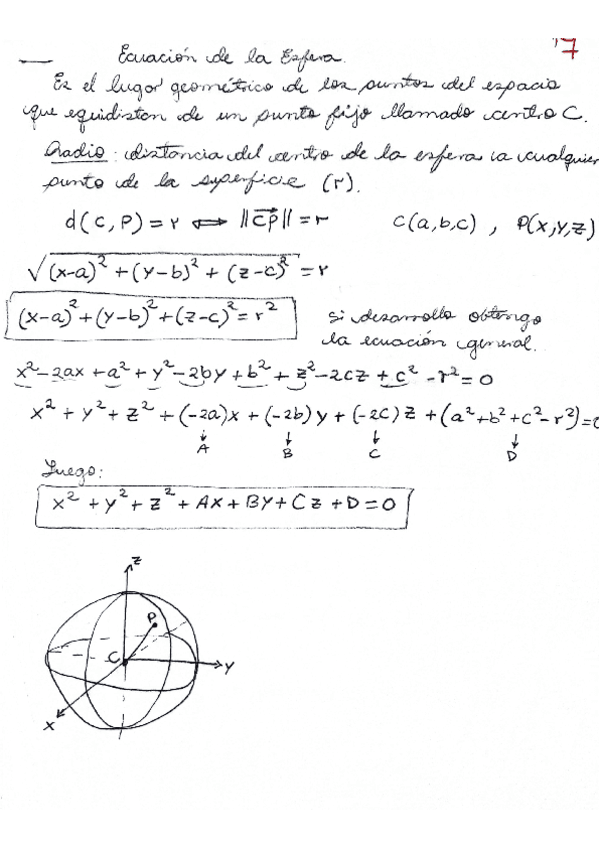 17
Ecuación de la Esfera.
Es el lugar geométrico de los puntos del espacio
que equidistan de un punto fijo llamado centro C.
Radio: distancia del centro de la esfera a cualquier
punto de la superficie (r).
d(C,P)=r ⟺ ||CP||=r C(a,b,c), P(x,y,z)
√((x-a)²+(y-b)²+(z-c)²)=r
(x-a)²+(y-b)²+(z-c)²=r² si desarrollo obtengo
la ecuación general.
x²-2ax+a²+y²-2by+b²+z²-2cz+c²-r²=0
x²+y²+z²+(-2a)x+(-2b)y+(-2c)z+(a²+b²+c²-r²)=0
↓ ↓ ↓ ↓
A B C D
Luego:
x²+y²+z²+Ax+By+Cz+D=0
z
P
C
y
x